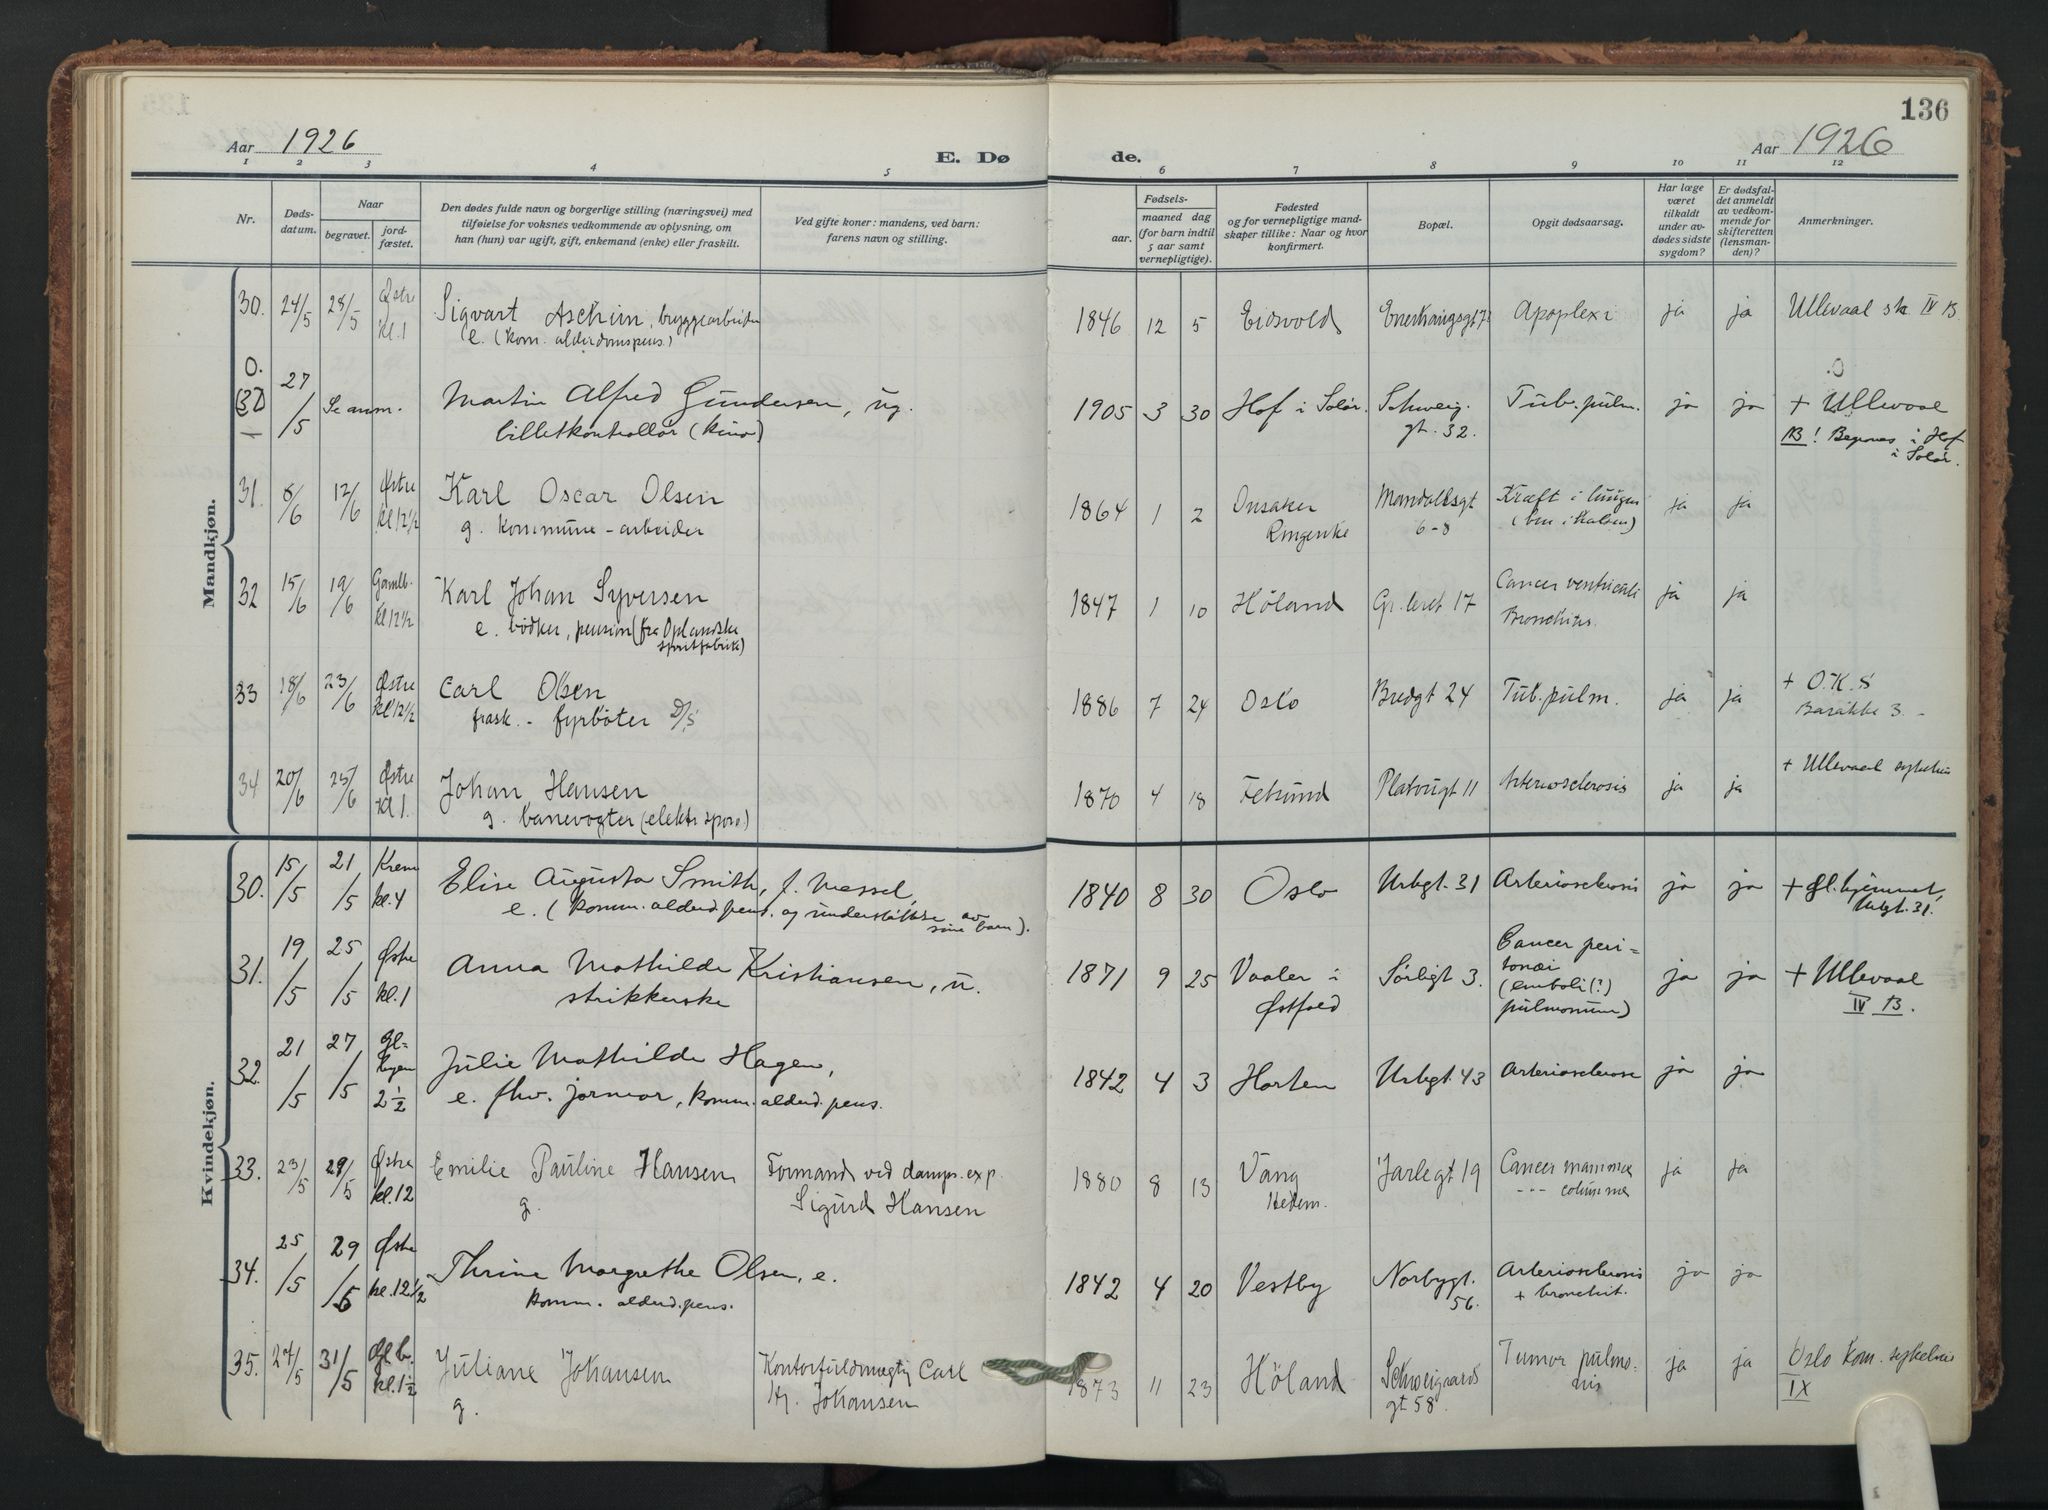 136
Aar 1926
E. Dø
de.
Aar 1926
1 2 3 4 5 6 7 8 9 10 11 12
Nr.
Døds-
datum.
Naar
begravet.
jord-
fæstet.
Den dødes fulde navn og borgerlige stilling (næringsvei) med
tilføielse for voksnes vedkommende av oplysning, om
han (hun) var ugift, gift, enkemand (enke) eller fraskilt.
Ved gifte koner: mandens, ved barn:
farens navn og stilling.
Fødsels-
aar.
maaned dag
(for barn indtil
5 aar samt
vernepligtige).
Fødested
og for vernepligtige mand-
skaper tillike: Naar og hvor
konfirmert.
Bopæl.
Opgit dødsaarsag.
Har læge
været
tilkaldt
under av-
dødes sidste
sygdom?
Er dødsfal-
det anmeldt
av vedkom-
mende for
skifteretten
(lensman-
den)?
Anmerkninger.
Mandkjøn.
30. 24/5 28/5 Østre kl. 1 Sigvart Aschim, bryggearbeider
e. (kom. alderdomspens.)
1846 12 5 Eidsvold Apoplexi ja ja Ullevaal sk. IV B.
0.
27/5 Se anm. Martin Alfred Gundersen, ug.
billetkontrollør (kino)
1905 3 30 Hof i Solør. Schweig. gt. 32. Tub. pulm. ja ja + Ullevaal
B! Begraves i Hof
i Solør.
31. 8/6 12/6 Østre kl 12½ Karl Oscar Olsen
g. kommune-arbeider
1864 1 2 Ringerike Mandalsgt 6-8 Kræft i lungen ja ja
32 15/6 19/6 Gamlb. kl 12½ Karl Johan Syversen
e. bødker, pension (fra Oplandske
spritfabrik)
1847 1 10 Høland Gr. leret 17 Cancer ventriculi
Bronchitis. ja ja
33 18/6 23/6 Østre kl 12½ Carl Olsen
frask. - fyrbøter D/S
1886 7 24 Oslo Bredgt 24 Tub. pulm. ja ja + O.K.S
Barakke 3.
34 20/6 25/6 Østre kl 1. Johan Hansen
g. banevogter (elektr spore)
1870 4 18 Fetsund Platougt 11 Arteriosclerosis ja ja + Ullevaal sykehus
Kvindekjøn.
30. 15/5 21/5 Krem kl. 4 Elise Augusta Smith, f. Messel,
e. (komm. alderd. pens. og understøttelse av
sine barn).
1840 8 30 Oslo Urbgt. 31 Arteriosclerosis ja ja + Gl. hjemmet,
Urbgt. 31.
31. 19/5 25/5 Østre kl. 1 Anna Mathilde Kristiansen, u.
strikkerske
1871 9 25 Vaaler i
Østfold Sørligt 3. Cancer peri-
tonæi
(emboli (?)
pulmonum) ja ja + Ullevaal
IV B.
32. 21/5 27/5 2½ Julie Mathilde Hagen,
e. fhv. jormor, komm. alderd. pens.
1842 4 3 Horten Urbgt. 43 Arteriosclerose ja ja
33. 23/5 29/5 Østre kl. 12 Emilie Pauline Hansen
g.
Formand ved damps. exp.
Sigurd Hansen
1880 8 13 Vang
Hedem. Jarlegt 19 Cancer mammæ
--- columna ja ja
34. 25/5 29/5 Østre kl. 12½ Thrine Margrethe Olsen, e.
komm. alderd. pens.
1842 4 20 Vestby Norbygt. 56. Arteriosclerosis
+ bronchit. ja ja
35. 27/5 31/5 Gl b. kl. 1½ Juliane Johansen
g.
Kontorfuldmægtig Carl
Kr. Johansen
1873 11 23 Høland Schweigaards
gt 58 Tumor pulmo-
nis ja ja Oslo Kom. sykehus
IX